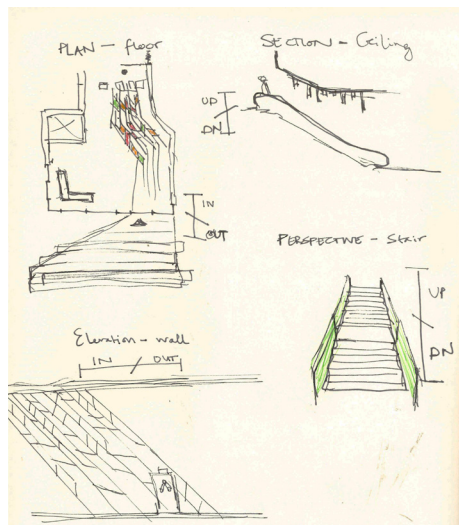 PLAN - floor
SECTION - Ceiling
UP
DN
IN
OUT
PERSPECTIVE - Stair
UP
DN
Elevation - wall
IN / OUT